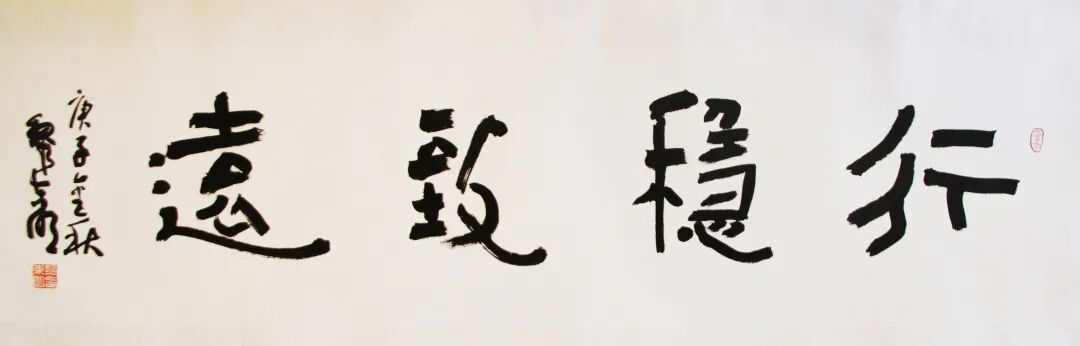 行穩致遠
庚子金秋